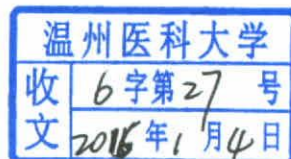 温州医科大学
收文
6字第27号
2016年1月4日